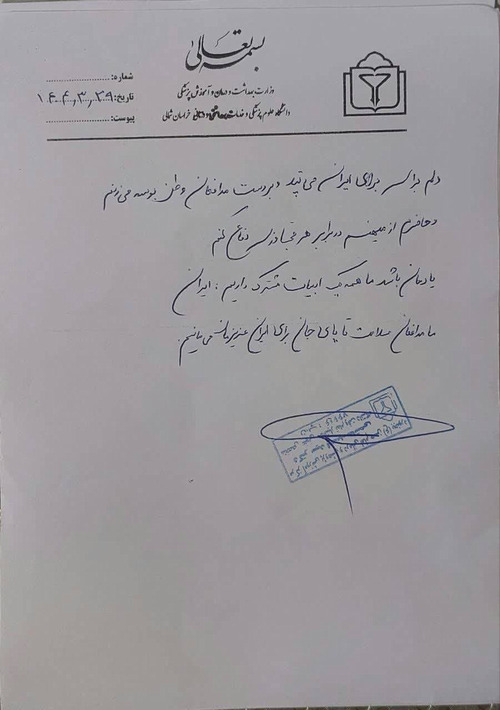 بسمه تعالی
وزارت بهداشت و درمان و آموزش پزشکی
دانشگاه علوم پزشکی و خدمات بهداشتی و درمانی خراسان شمالی
شماره:
تاریخ: ۱۴۰۴,۳,۲۹
پیوست:
دلم برای ایران می‌تپد و بر دست مدافعان وطن بوسه می‌زنم
و حاضرم از میهنم در برابر هر متجاوزی دفاع کنم
یادمان باشد ما همه یک ادبیات مشترک داریم ؛ ایران
ما مدافعان سلامت تا پای جان برای ایران عزیزمان می‌مانیم.